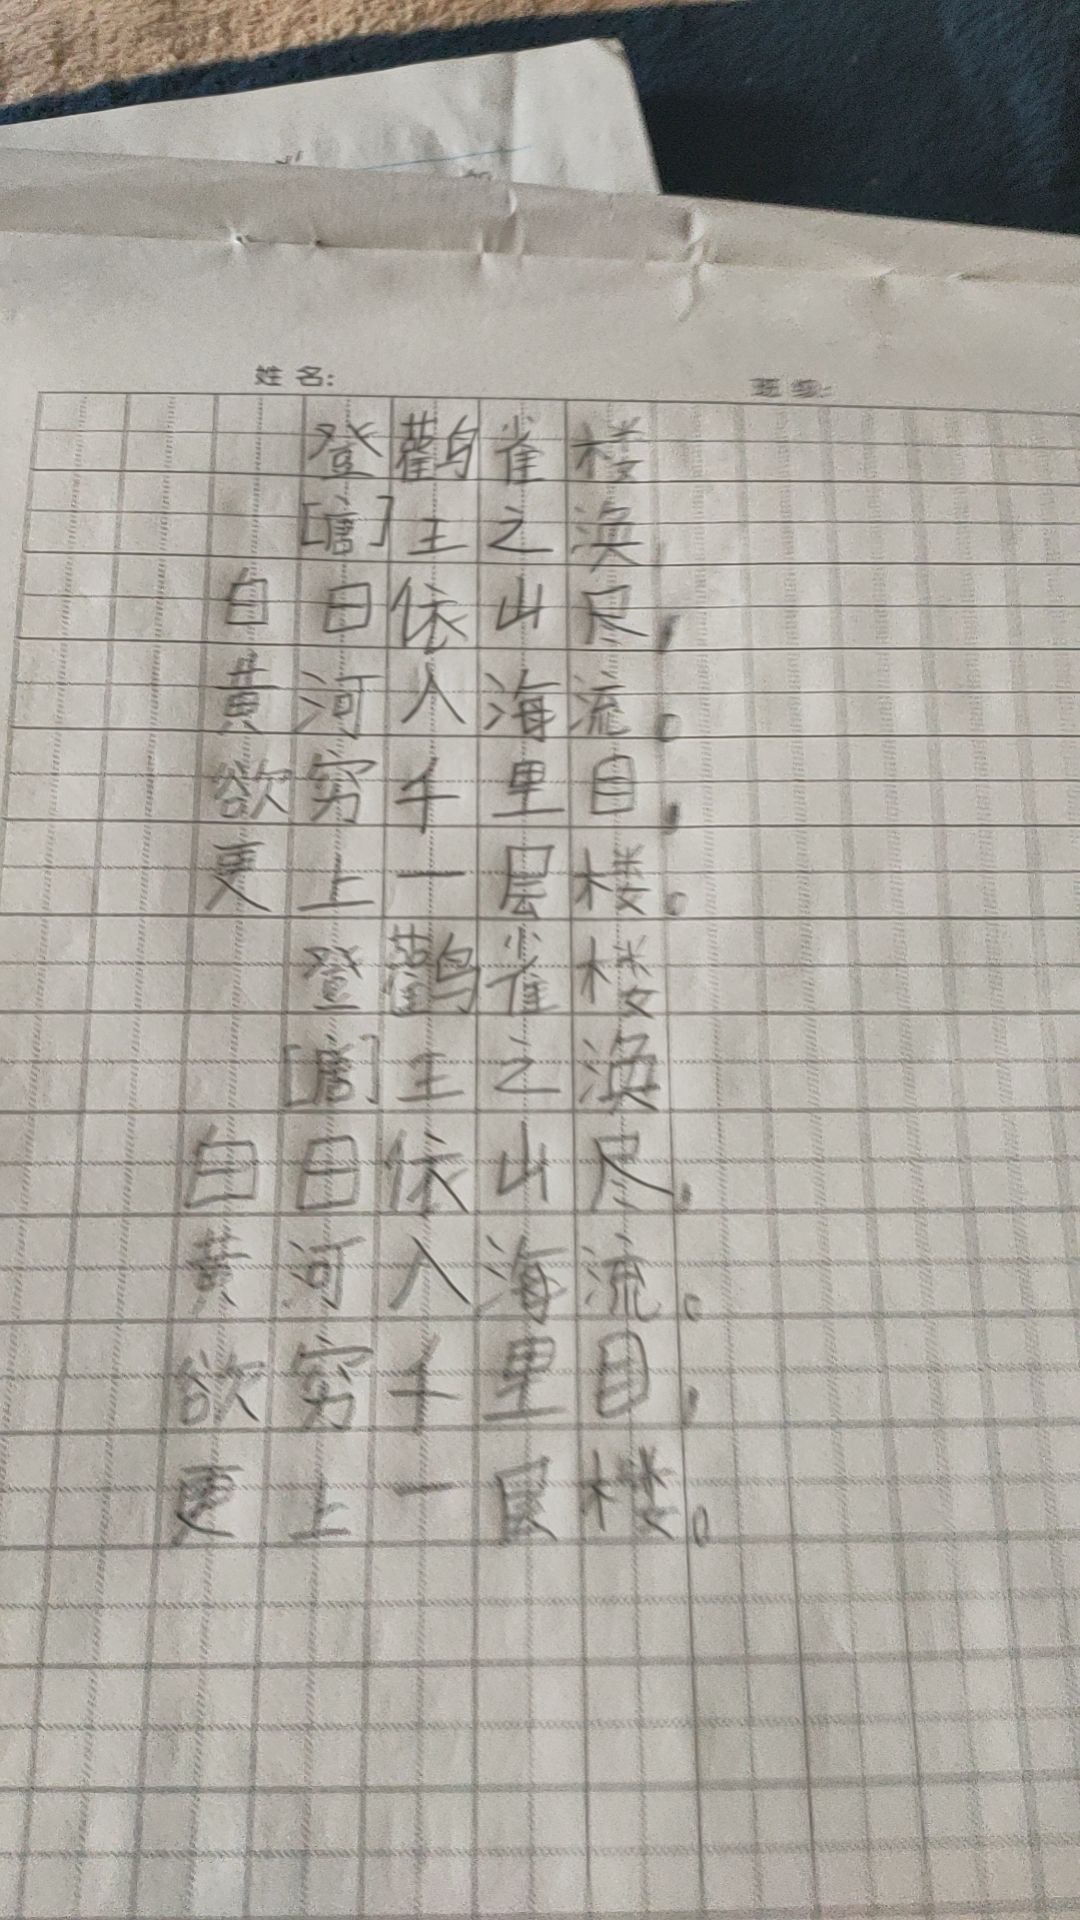 姓名: 班级:
登鹳雀楼
[唐]王之涣
白日依山尽,
黄河入海流。
欲穷千里目,
更上一层楼。
登鹳雀楼
[唐]王之涣
白日依山尽,
黄河入海流。
欲穷千里目,
更上一层楼。